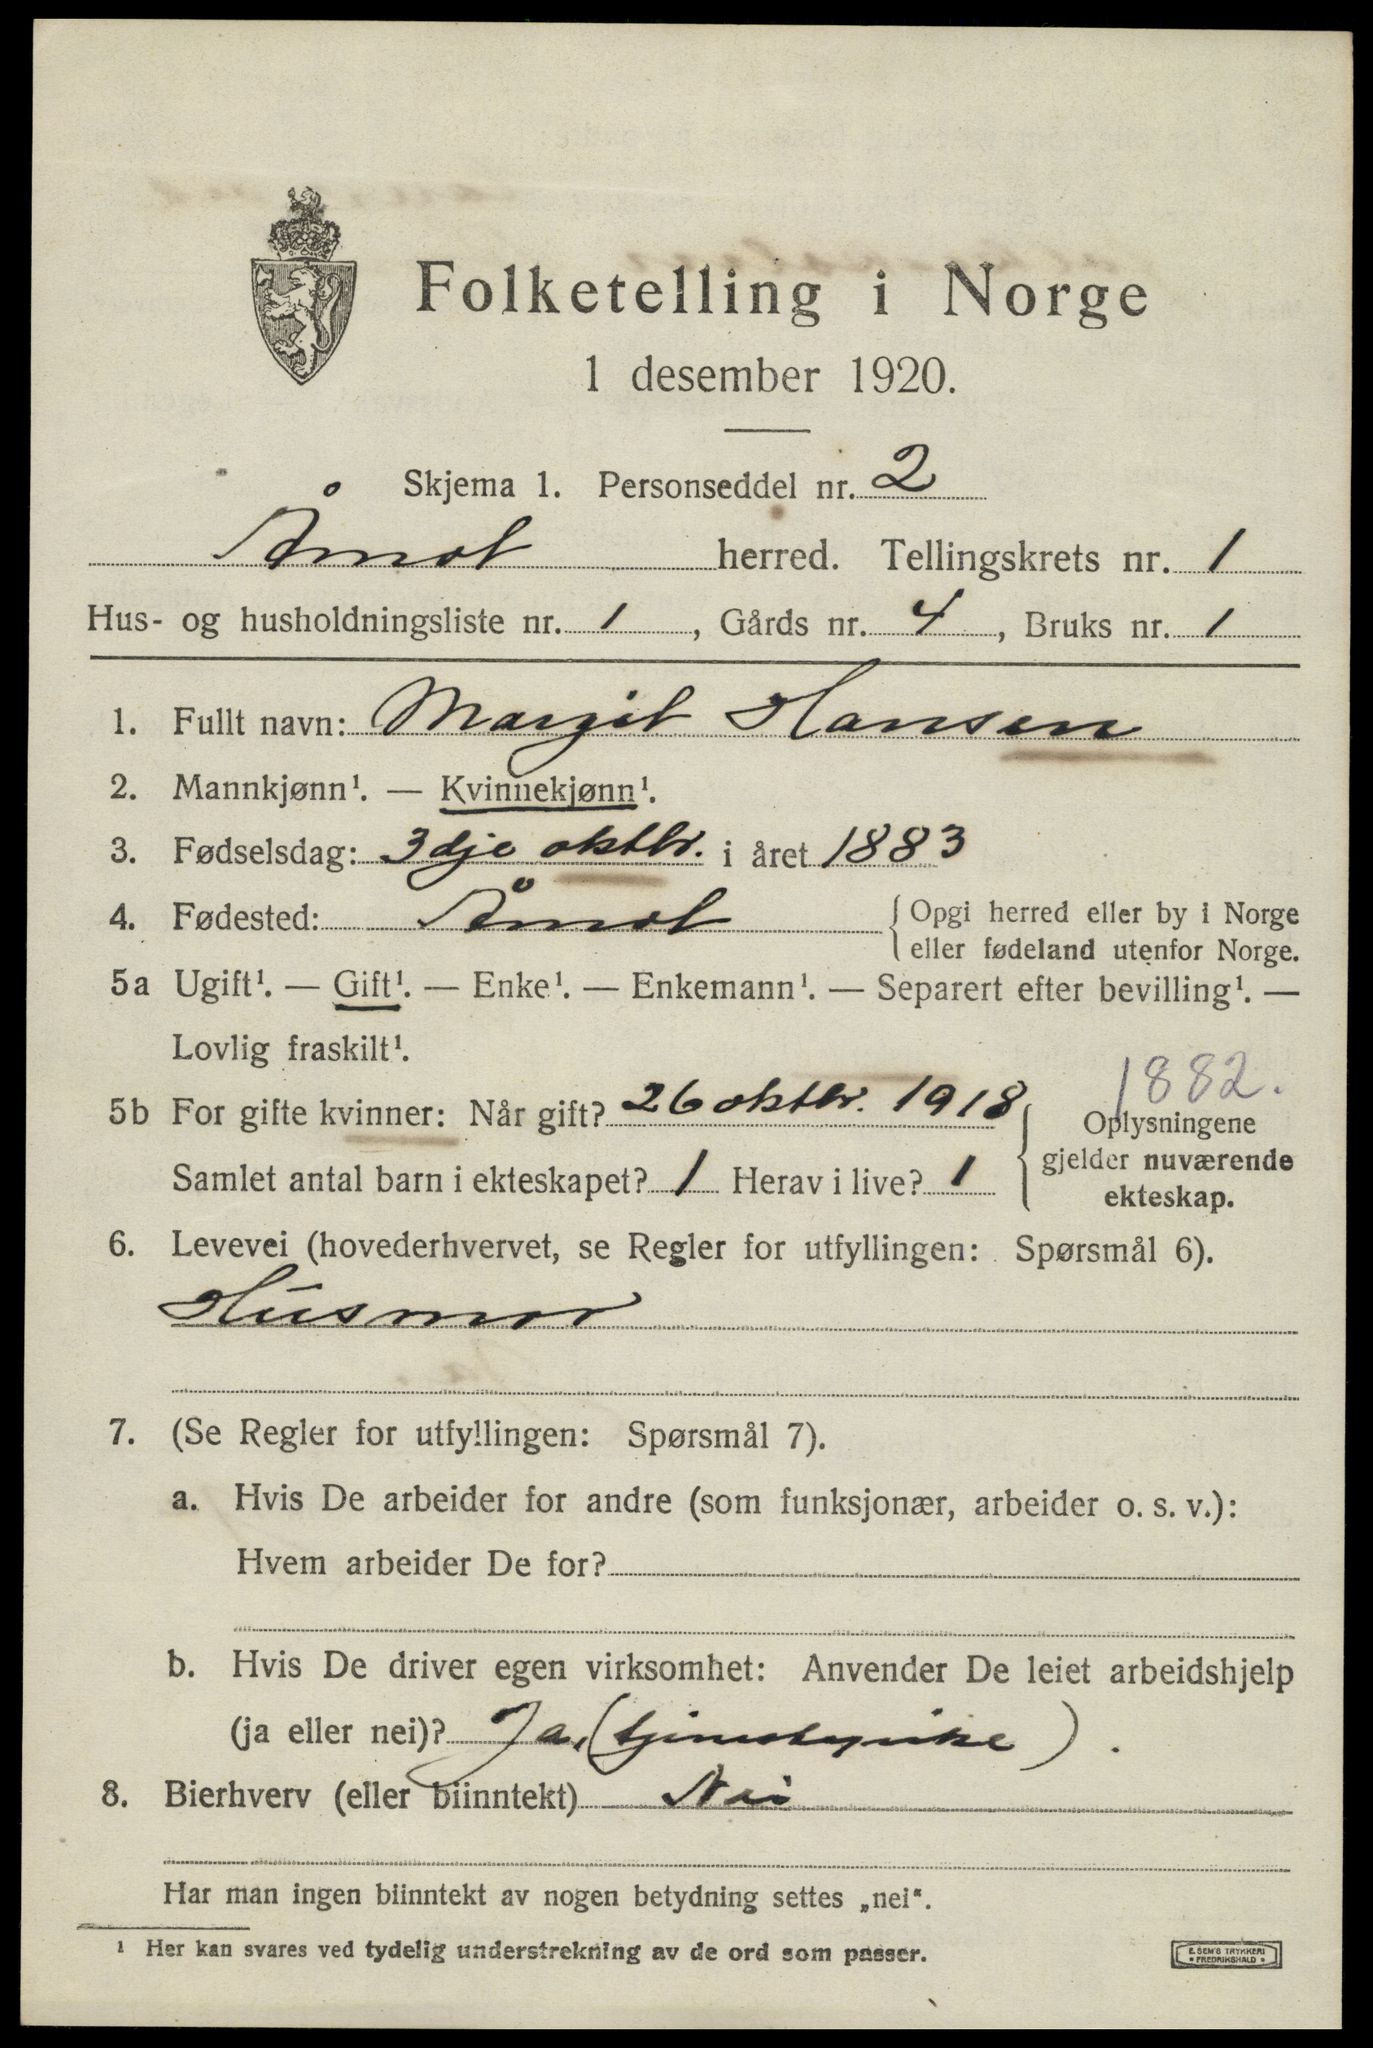 Folketelling i Norge
1 desember 1920.
Skjema 1. Personseddel nr. 2
Åmot herred. Tellingskrets nr. 1
Hus- og husholdningsliste nr. 1, Gårds nr. 4, Bruks nr. 1
1. Fullt navn: Margit Hansen
2. Mannkjønn¹. — Kvinnekjønn¹.
3. Fødselsdag: 3dje oktbr. i året 1883
4. Fødested: Åmot { Opgi herred eller by i Norge
eller fødeland utenfor Norge.
5a Ugift¹. — Gift¹. — Enke¹. — Enkemann¹. — Separert efter bevilling¹. —
Lovlig fraskilt¹.
1882.
5b For gifte kvinner: Når gift? 26 oktbr. 1918 { Oplysningene
gjelder nuværende
Samlet antal barn i ekteskapet? 1 Herav i live? 1
ekteskap.
6. Levevei (hovederhvervet, se Regler for utfyllingen: Spørsmål 6).
Husmor
7. (Se Regler for utfyllingen: Spørsmål 7).
a. Hvis De arbeider for andre (som funksjonær, arbeider o. s. v.):
Hvem arbeider De for?
b. Hvis De driver egen virksomhet: Anvender De leiet arbeidshjelp
(ja eller nei)? Ja, (tjenestepike).
8. Bierhverv (eller biinntekt) Nei
Har man ingen biinntekt av nogen betydning settes „nei“.
¹ Her kan svares ved tydelig understrekning av de ord som passer.
E. SEM'S TRYKKERI
* FREDRIKSHALD *